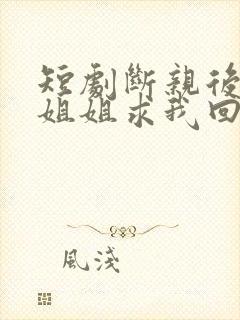 短劇斷親後
姐姐求我回
風淺